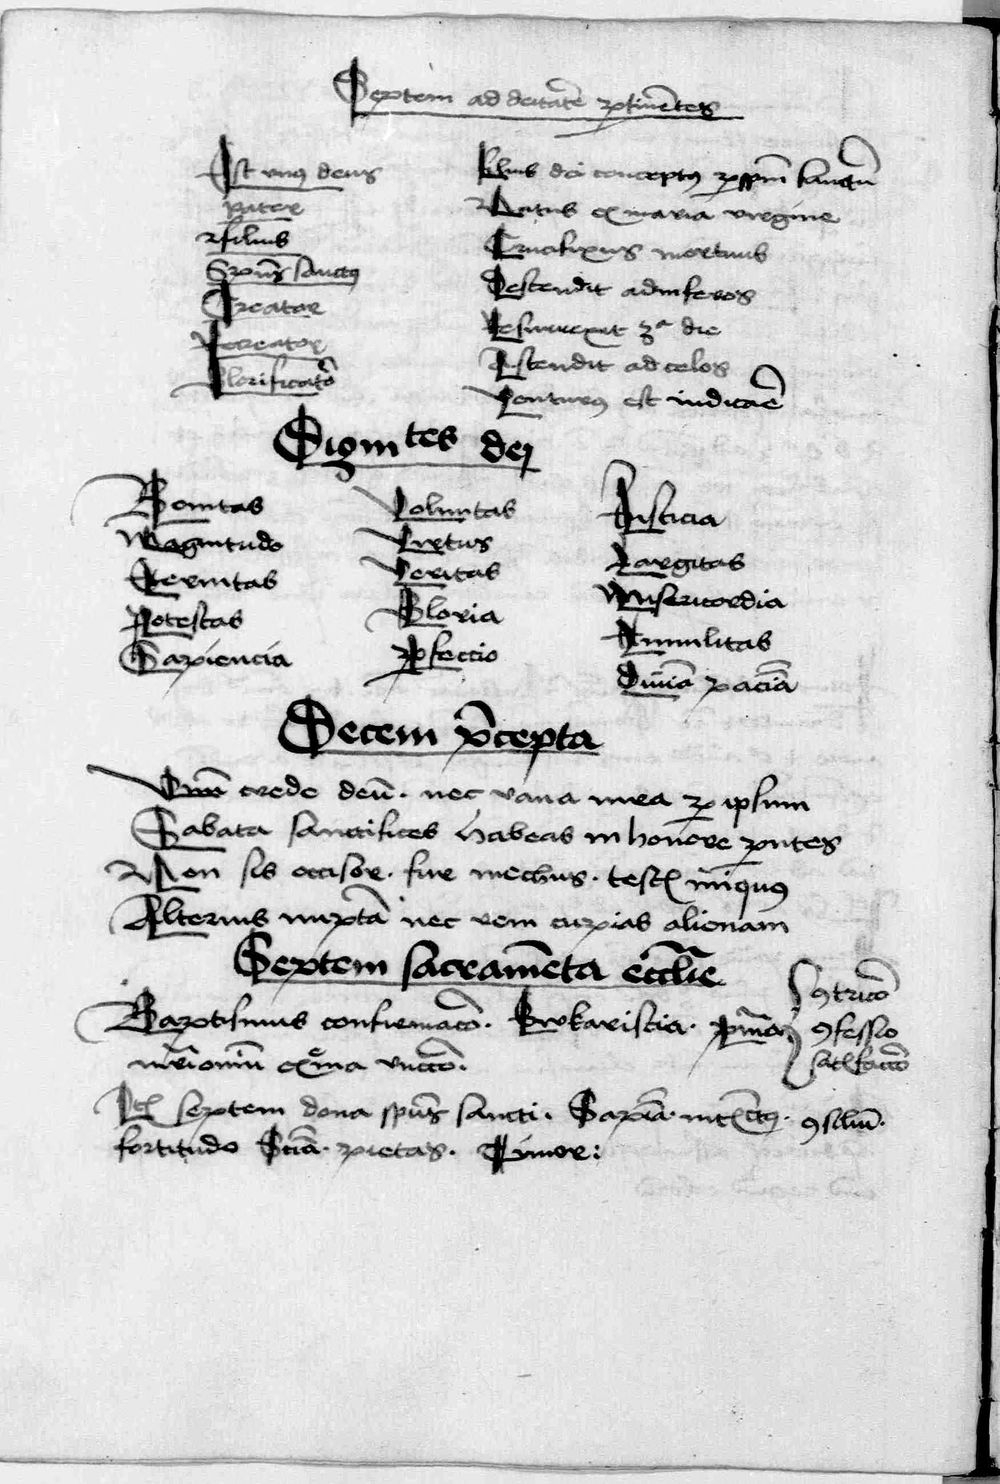 Septem ad deitatē ꝑtinētes
Est vnꝰ deus
pater
⁊ filius
Spūs sanctꝰ
Creator
Recreator
Glorificatō
Filius dei conceptꝰ ꝑ spm̄ sanctū
Natus ex maria virgine
Crucifixus mortuus
Descendit ad inferos
Resurrexit 3ᵃ die
Ascendit ad celos
Venturꝰ est iudicaē
Dignitates dej
Bonitas
Magnitudo
Eternitas
Potestas
Sapiencia
Voluntas
Virtus
Veritas
Gloria
ꝑfeccio
Iusticia
Largitas
Misericordia
Humilitas
Diuīa paciā
Decem p̄cepta
Vnū crede deū. nec vana iures ꝑ ipsum
Sabata sanctifices habeas in honore pn̄tes
Non sis occisor. fur mechus. testꝭ iniquꝰ
Alterius nuptā nec rem cupias alienam
Septem sacramēta eccl̄ie
Baptismus confirmacō. Ewkaristia. pn̄ia
ꝯtricō
ꝯfessio
satisfaccō
mr̄imoniū exͤma vnccō.
Itē septem dona spūs sancti. Sapīa. intꝉctꝰ. ꝯsiliū.
fortitudo Sciā. pietas. Timor: